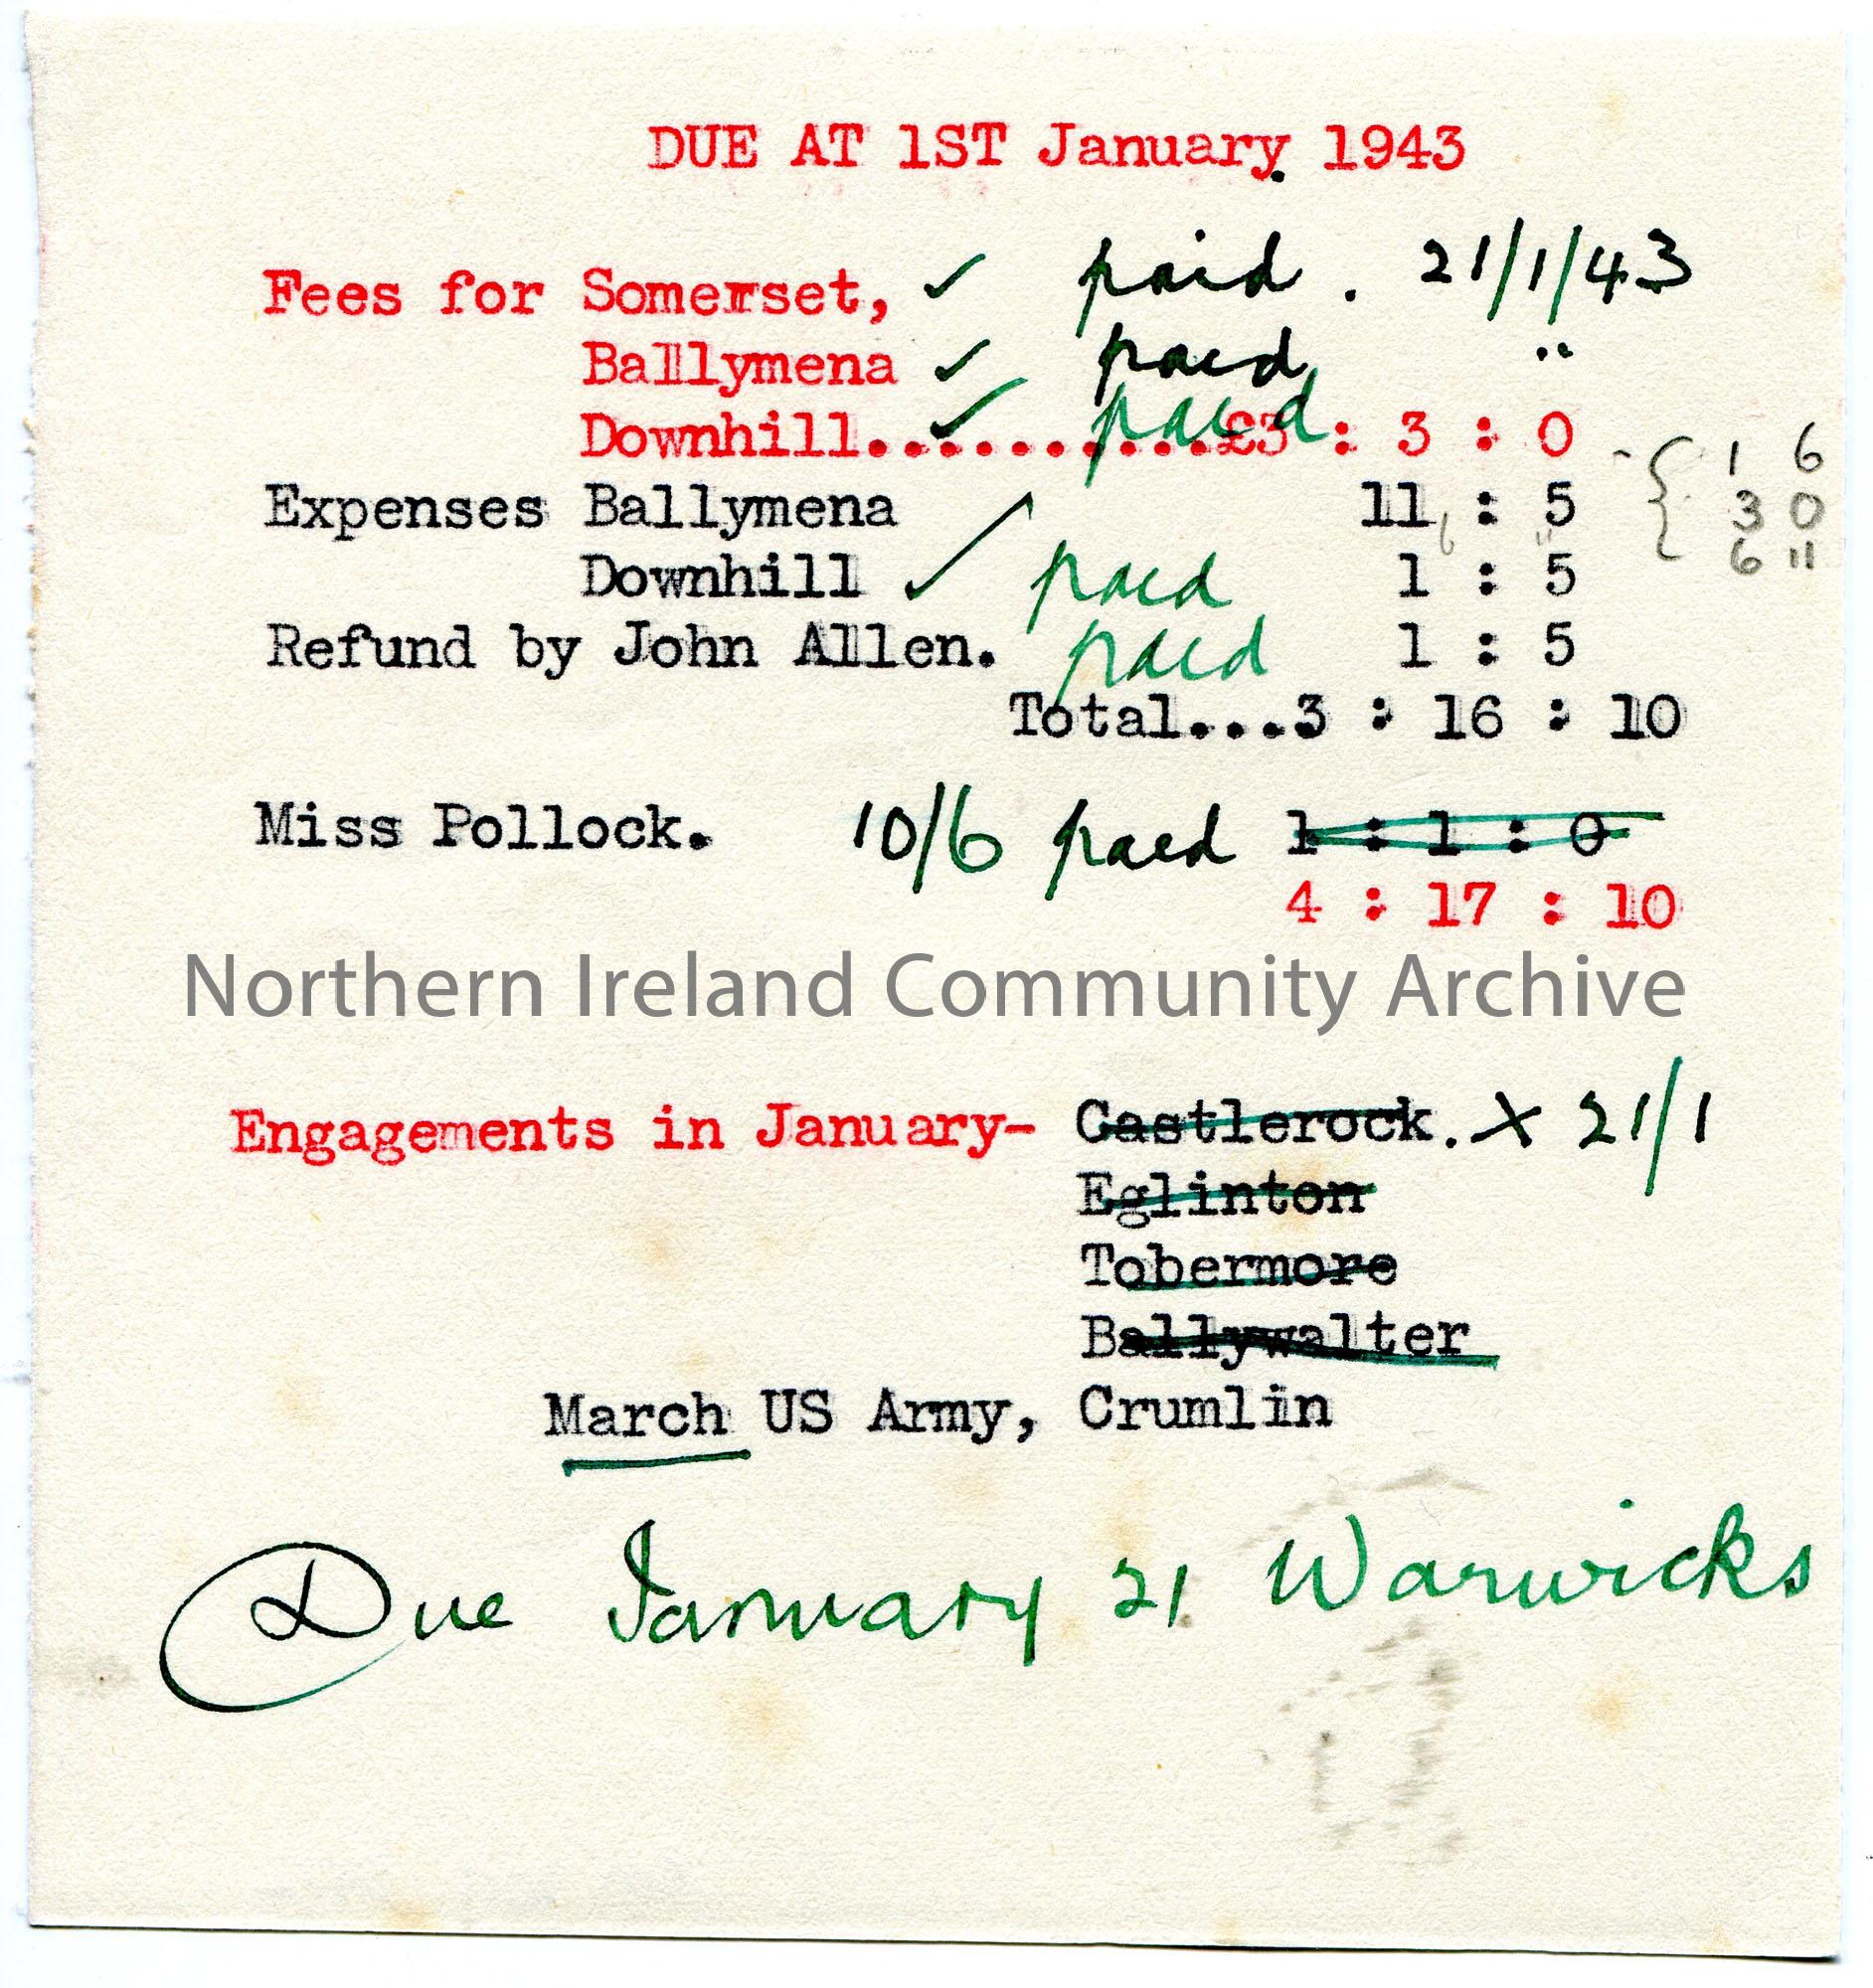 DUE AT 1ST January 1943
Fees for Somerset, ✓ paid . 21/1/43
Ballymena ✓ paid "
Downhill..........£3 : 3 : 0 ✓ paid { 1 6
Expenses Ballymena 11 : 5 3 0
6 "
Downhill ✓ paid 1 : 5 6 11
Refund by John Allen. paid 1 : 5
Total...3 : 16 : 10
Miss Pollock. 10/6 paid 1 : 1 : 0
4 : 17 : 10
Northern Ireland Community Archive
Engagements in January- Castlerock. X 21/1
Eglinton
Tobermore
Ballywalter
March US Army, Crumlin
Due January 21 Warwicks